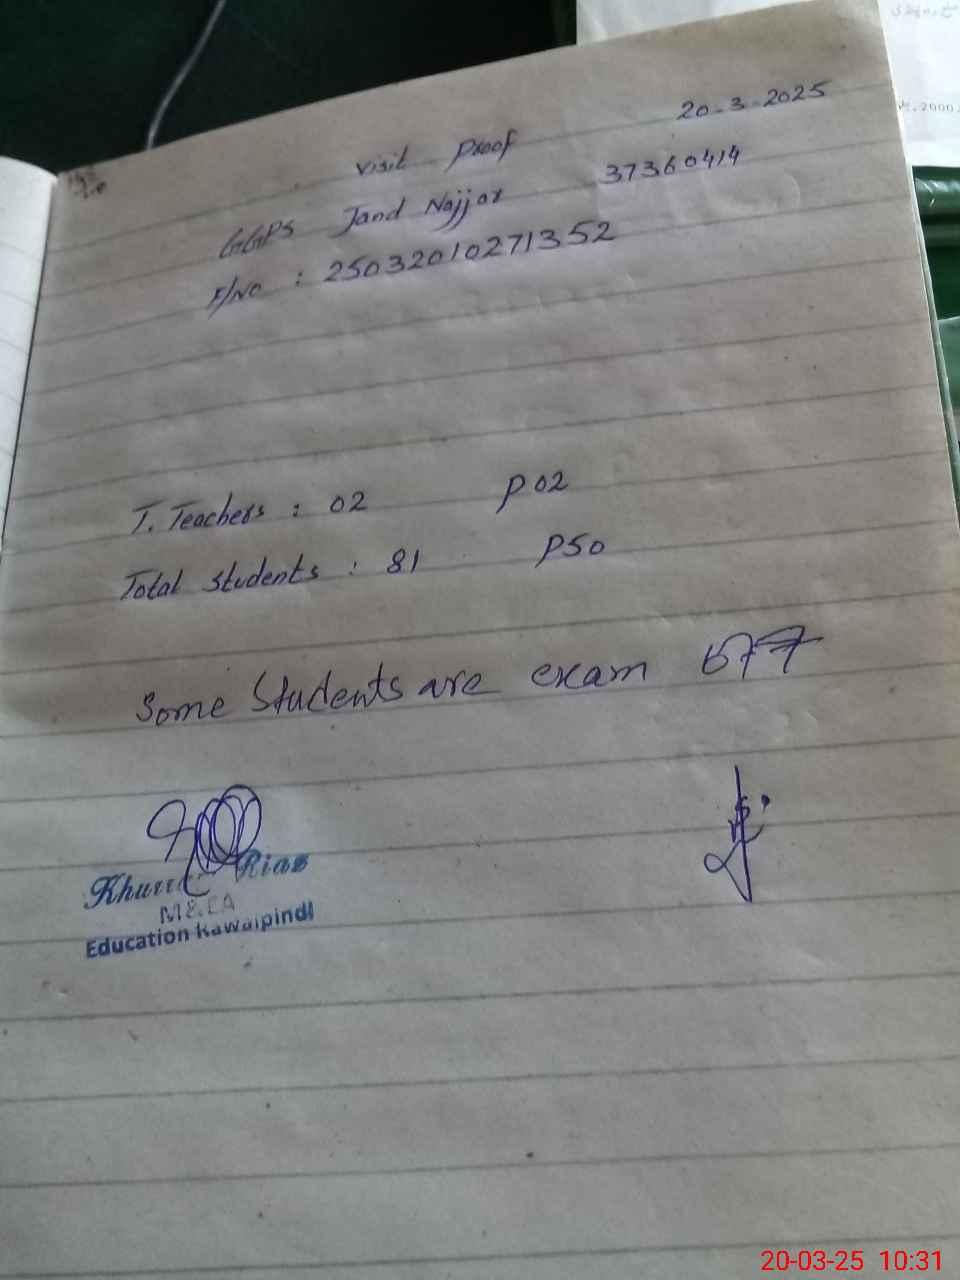 20-3-2025
visit Proof
GGPS Jand Najjar 37360414
F/No : 25032010271352
T. Teachers : 02 P 02
Total students : 81 P50
Some Students are exam
Riaz
M&EA
Education Rawalpindi
20-03-25 10:31